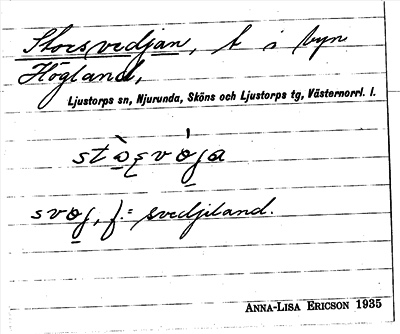 Storsvedjan, t i byn
Högland,
Ljustorps sn, Njurunda, Sköns och Ljustorps tg, Västernorrl. l.
svoj, f. = svedjiland.
ANNA-LISA ERICSON 1935